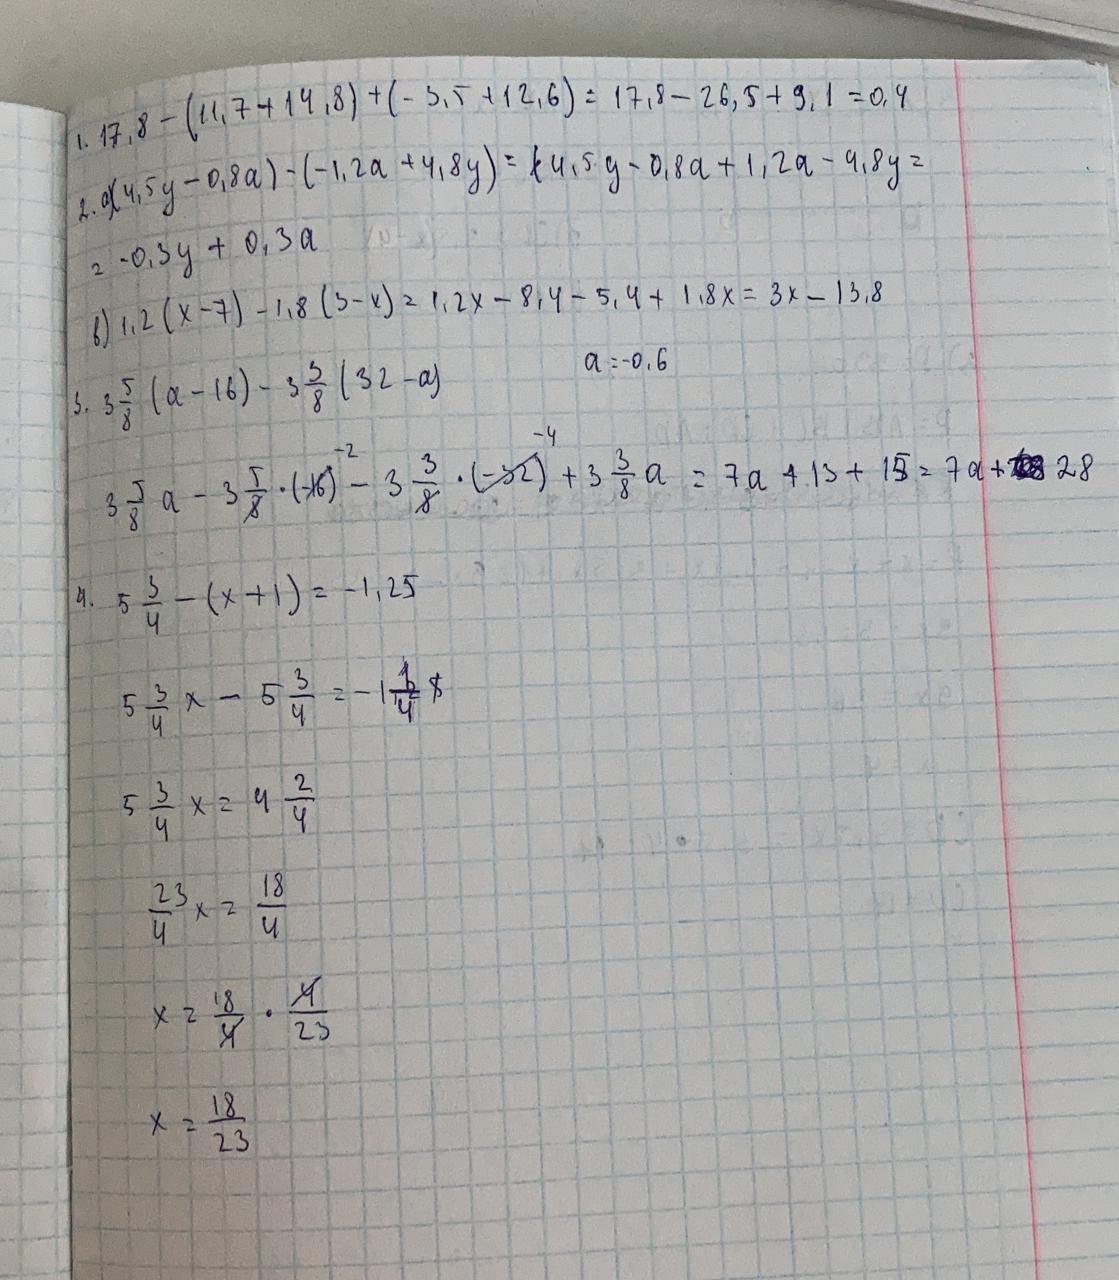 1. 17,8 - (11,7 + 14,8) + (- 3,5 + 12,6) = 17,8 - 26,5 + 9,1 = 0,4
2. а) (4,5y - 0,8a) - (-1,2a + 4,8y) = 4,5y - 0,8a + 1,2a - 4,8y =
= -0,3y + 0,3a
б) 1,2 (x - 7) - 1,8 (3 - x) = 1,2x - 8,4 - 5,4 + 1,8x = 3x - 13,8
3. 3 5/8 (a - 16) - 3 3/8 (32 - a) a = -0,6
3 5/8 a - 3 5/8 · (-16) -2 - 3 3/8 · (-32) -4 + 3 3/8 a = 7a + 13 + 15 = 7a + 28
4. 5 3/4 - (x + 1) = -1,25
5 3/4 x - 5 3/4 = -1 1/4
5 3/4 x = 4 2/4
23/4 x = 18/4
x = 18/4 · 4/23
x = 18/23